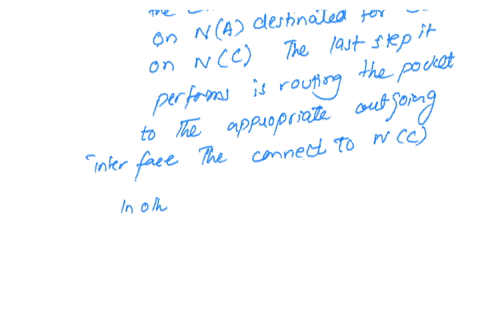 the
on N(A) destinated for
on N(C) The last step it
performs is routing the pocket
to The appropriate outgoing
inter face The connect to N(C)
In oth